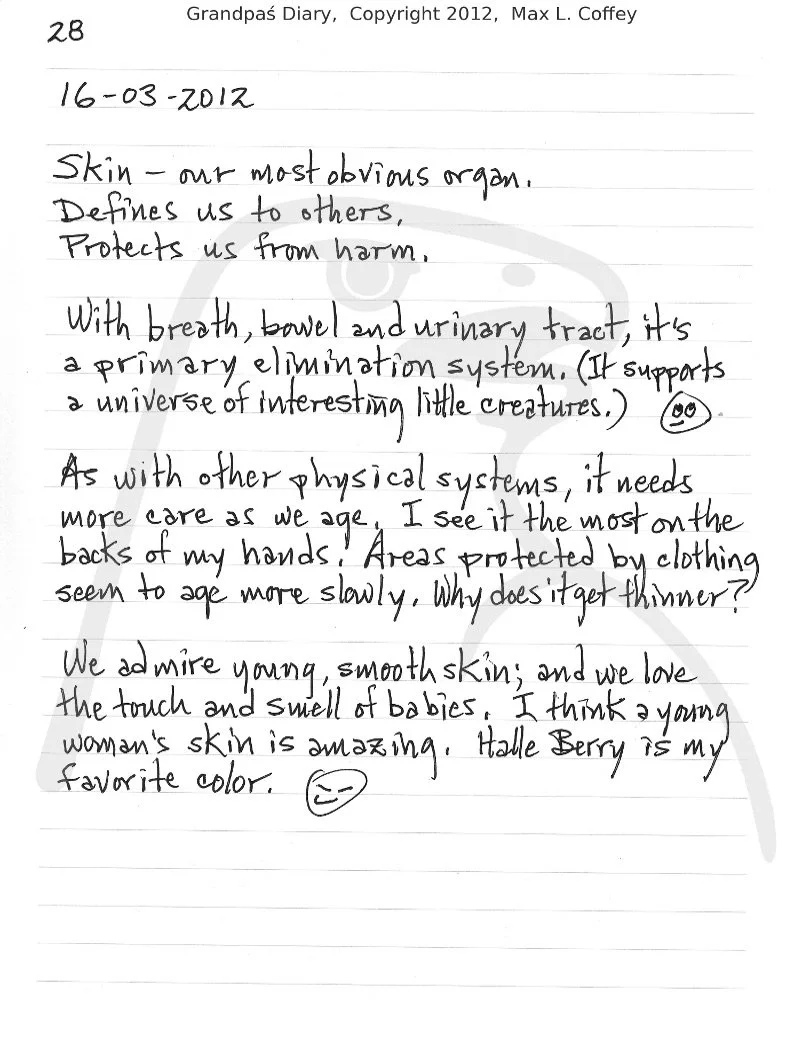 Grandpaś Diary,  Copyright 2012,  Max L. Coffey
28
16-03-2012
Skin – our most obvious organ.
Defines us to others,
Protects us from harm.
With breath, bowel and urinary tract, it's
a primary elimination system. (It supports
a universe of interesting little creatures.)
As with other physical systems, it needs
more care as we age. I see it the most on the
backs of my hands. Areas protected by clothing
seem to age more slowly. Why does it get thinner?
We admire young, smooth skin; and we love
the touch and smell of babies. I think a young
woman's skin is amazing. Halle Berry is my
favorite color.